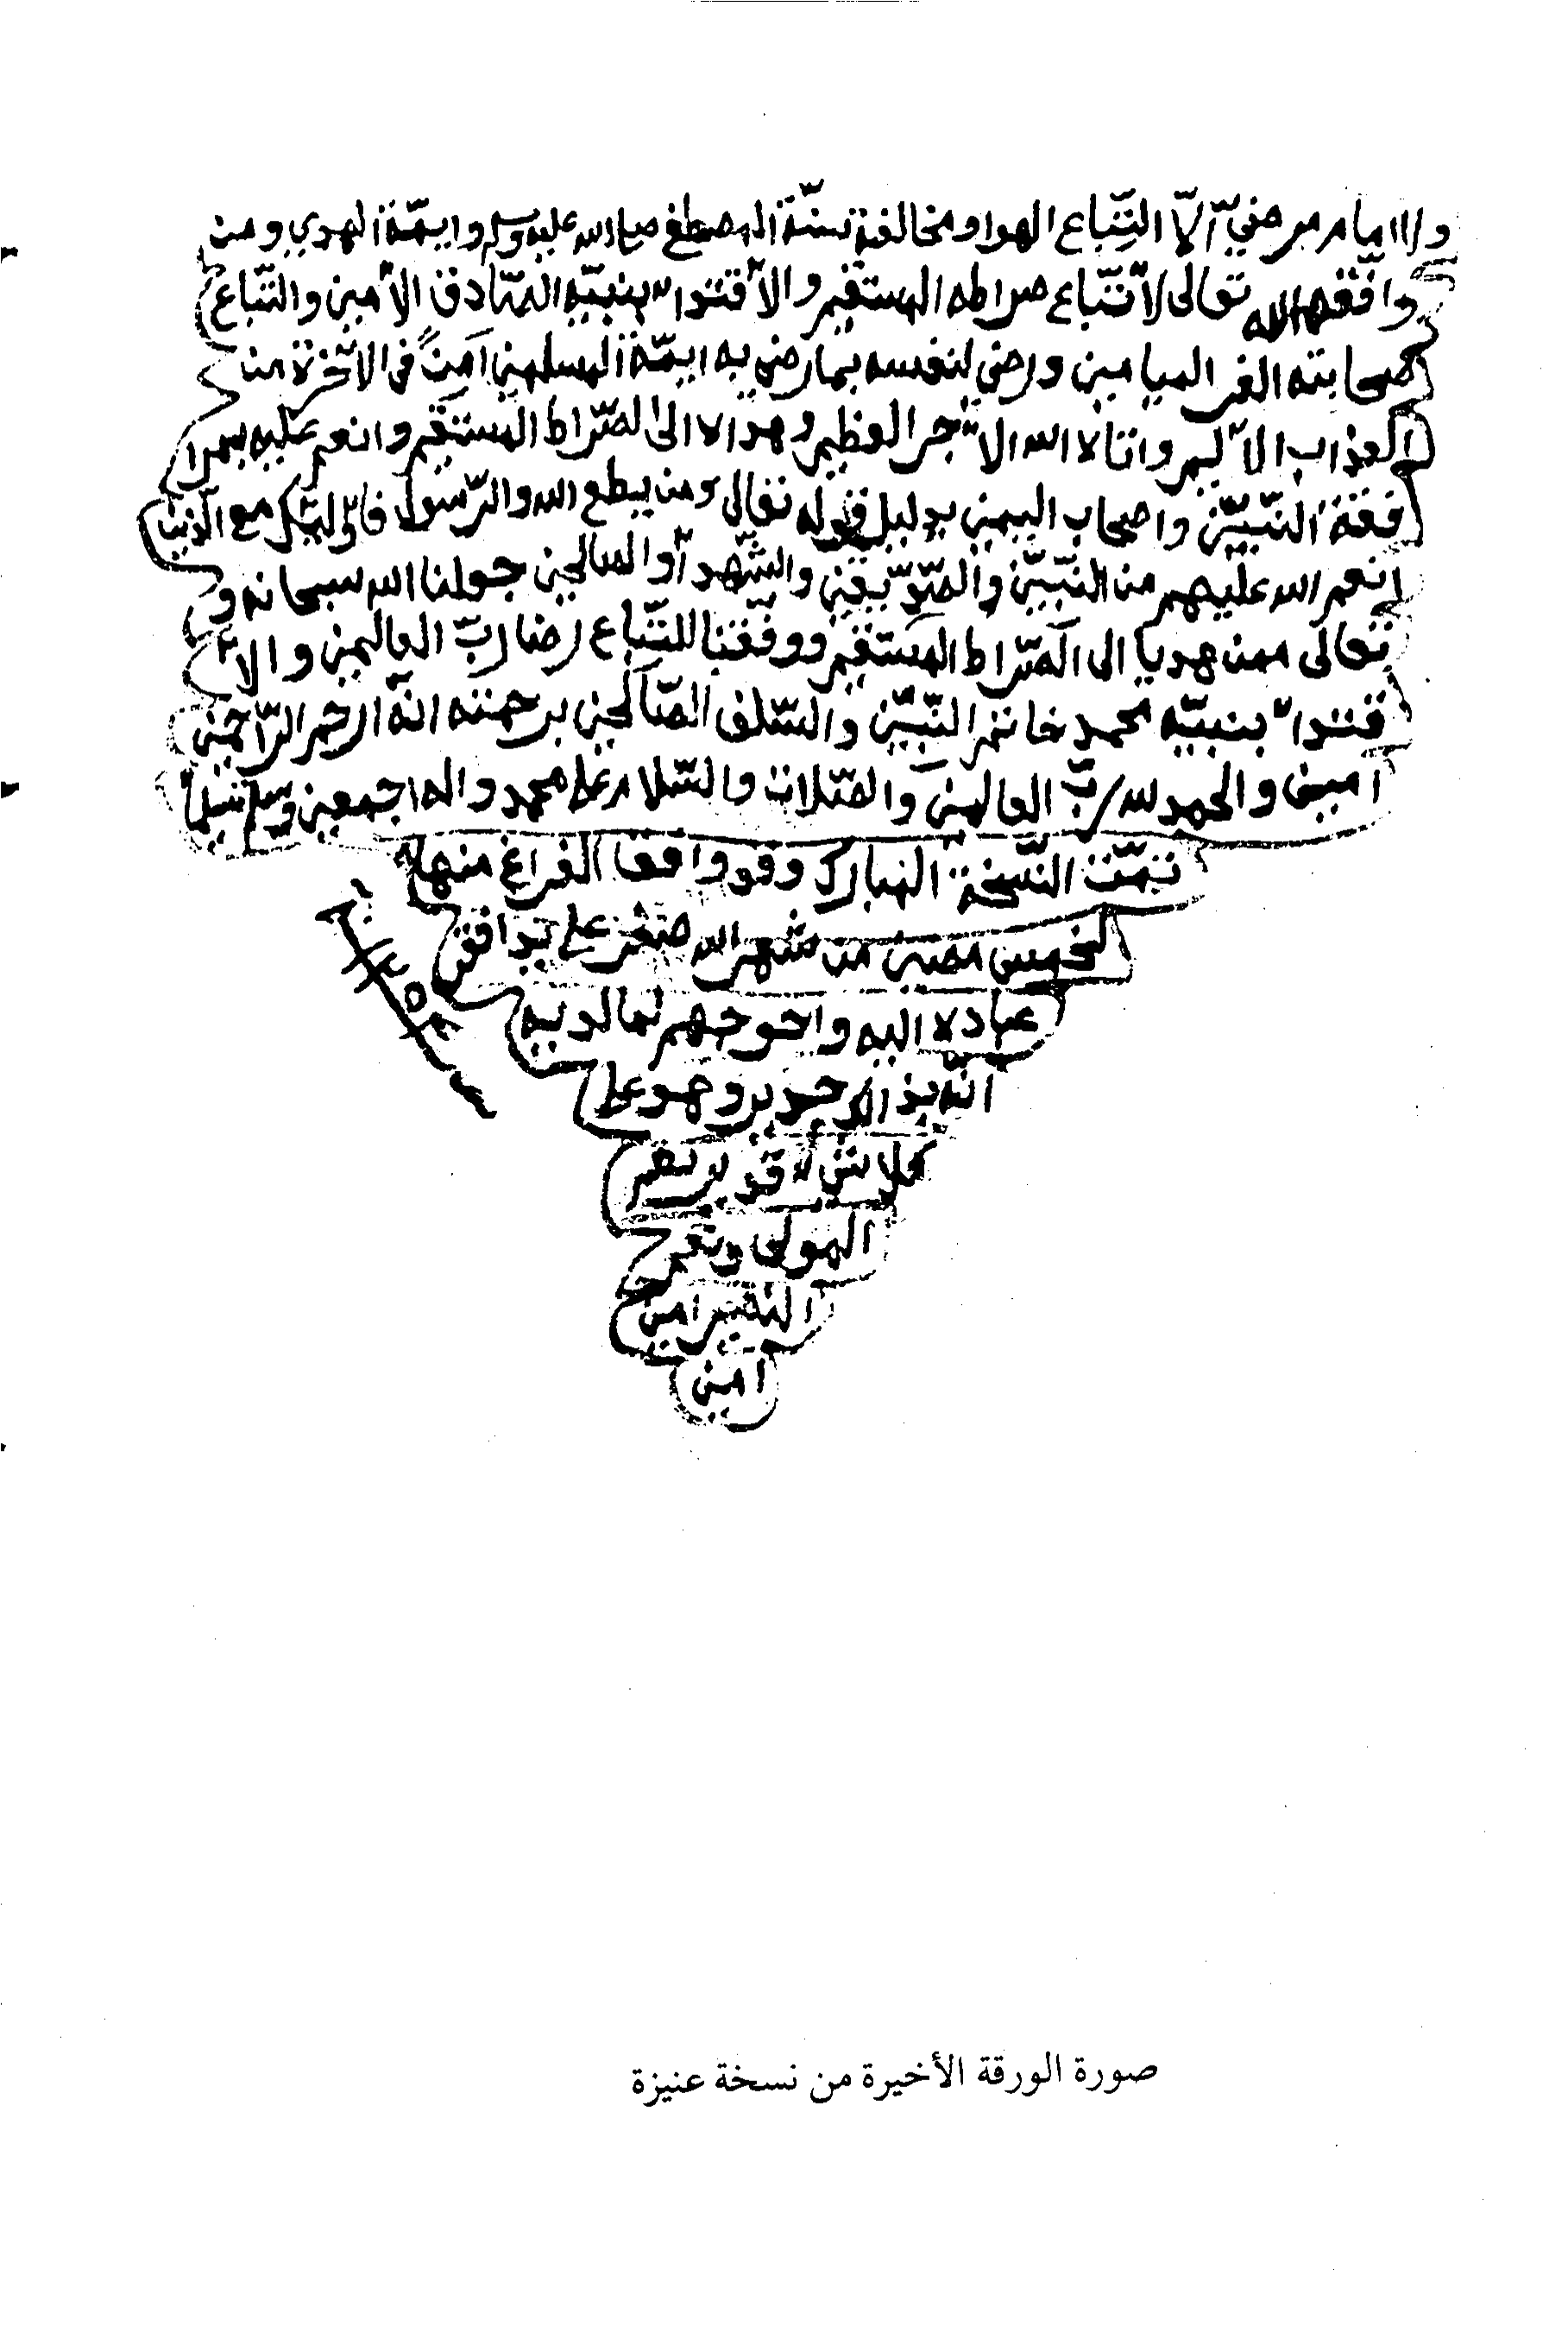 ولا امام مرضيّ الّا التّباع الهوا ومخالفة سنّة المصطفى صلى الله عليه وسلم وايمّة الهدي ومن
وافّقه الله تعالى لاتّباع صراطه المستقيم والاقتدوا بنبيّه الصّادق الامين والتّباع
صحابته الغر الميامين ورضي لنفسه بما رضي به ايمّة المسلمين امن في الاخرة من
العذاب الاليم واتاه الله الاجر العظيم وهداه الى الصّراط المستقيم وانعم عليه بمرا
فقة النّبيّين واصحاب اليمين بدليل قوله تعالى ومن يطع الله والرّسول فاوليك مع الذين
انعم الله عليهم من النّبيّين والصّدّيقين والشّهدآ والصالحين جعلنا الله سبحانه و
تعالى ممن هديا الى الصّراط المستقيم ووفّقنا للتّباع رضا ربّ العالمين والا
قتدوا بنبيّه محمد خاتم النّبيّين والسّلف الصّالحين برحمته انّه ارحم الرّاحمين
امين والحمد لله ربّ العالمين والصّلات والسّلام على محمد واله اجمعين وسلم تسليما
تمّت النّسخة المبارك وقد وافقا الفراغ منها
لخمس مضين من شهر الله صفر على يد افقر
عباده اليه واحوجهم لما لديه
انّه بذالك جدير وهو على
كل شيء قدير نعم
المولى ونعم
النصير امين
امين
صورة الورقة الأخيرة من نسخة عنيزة